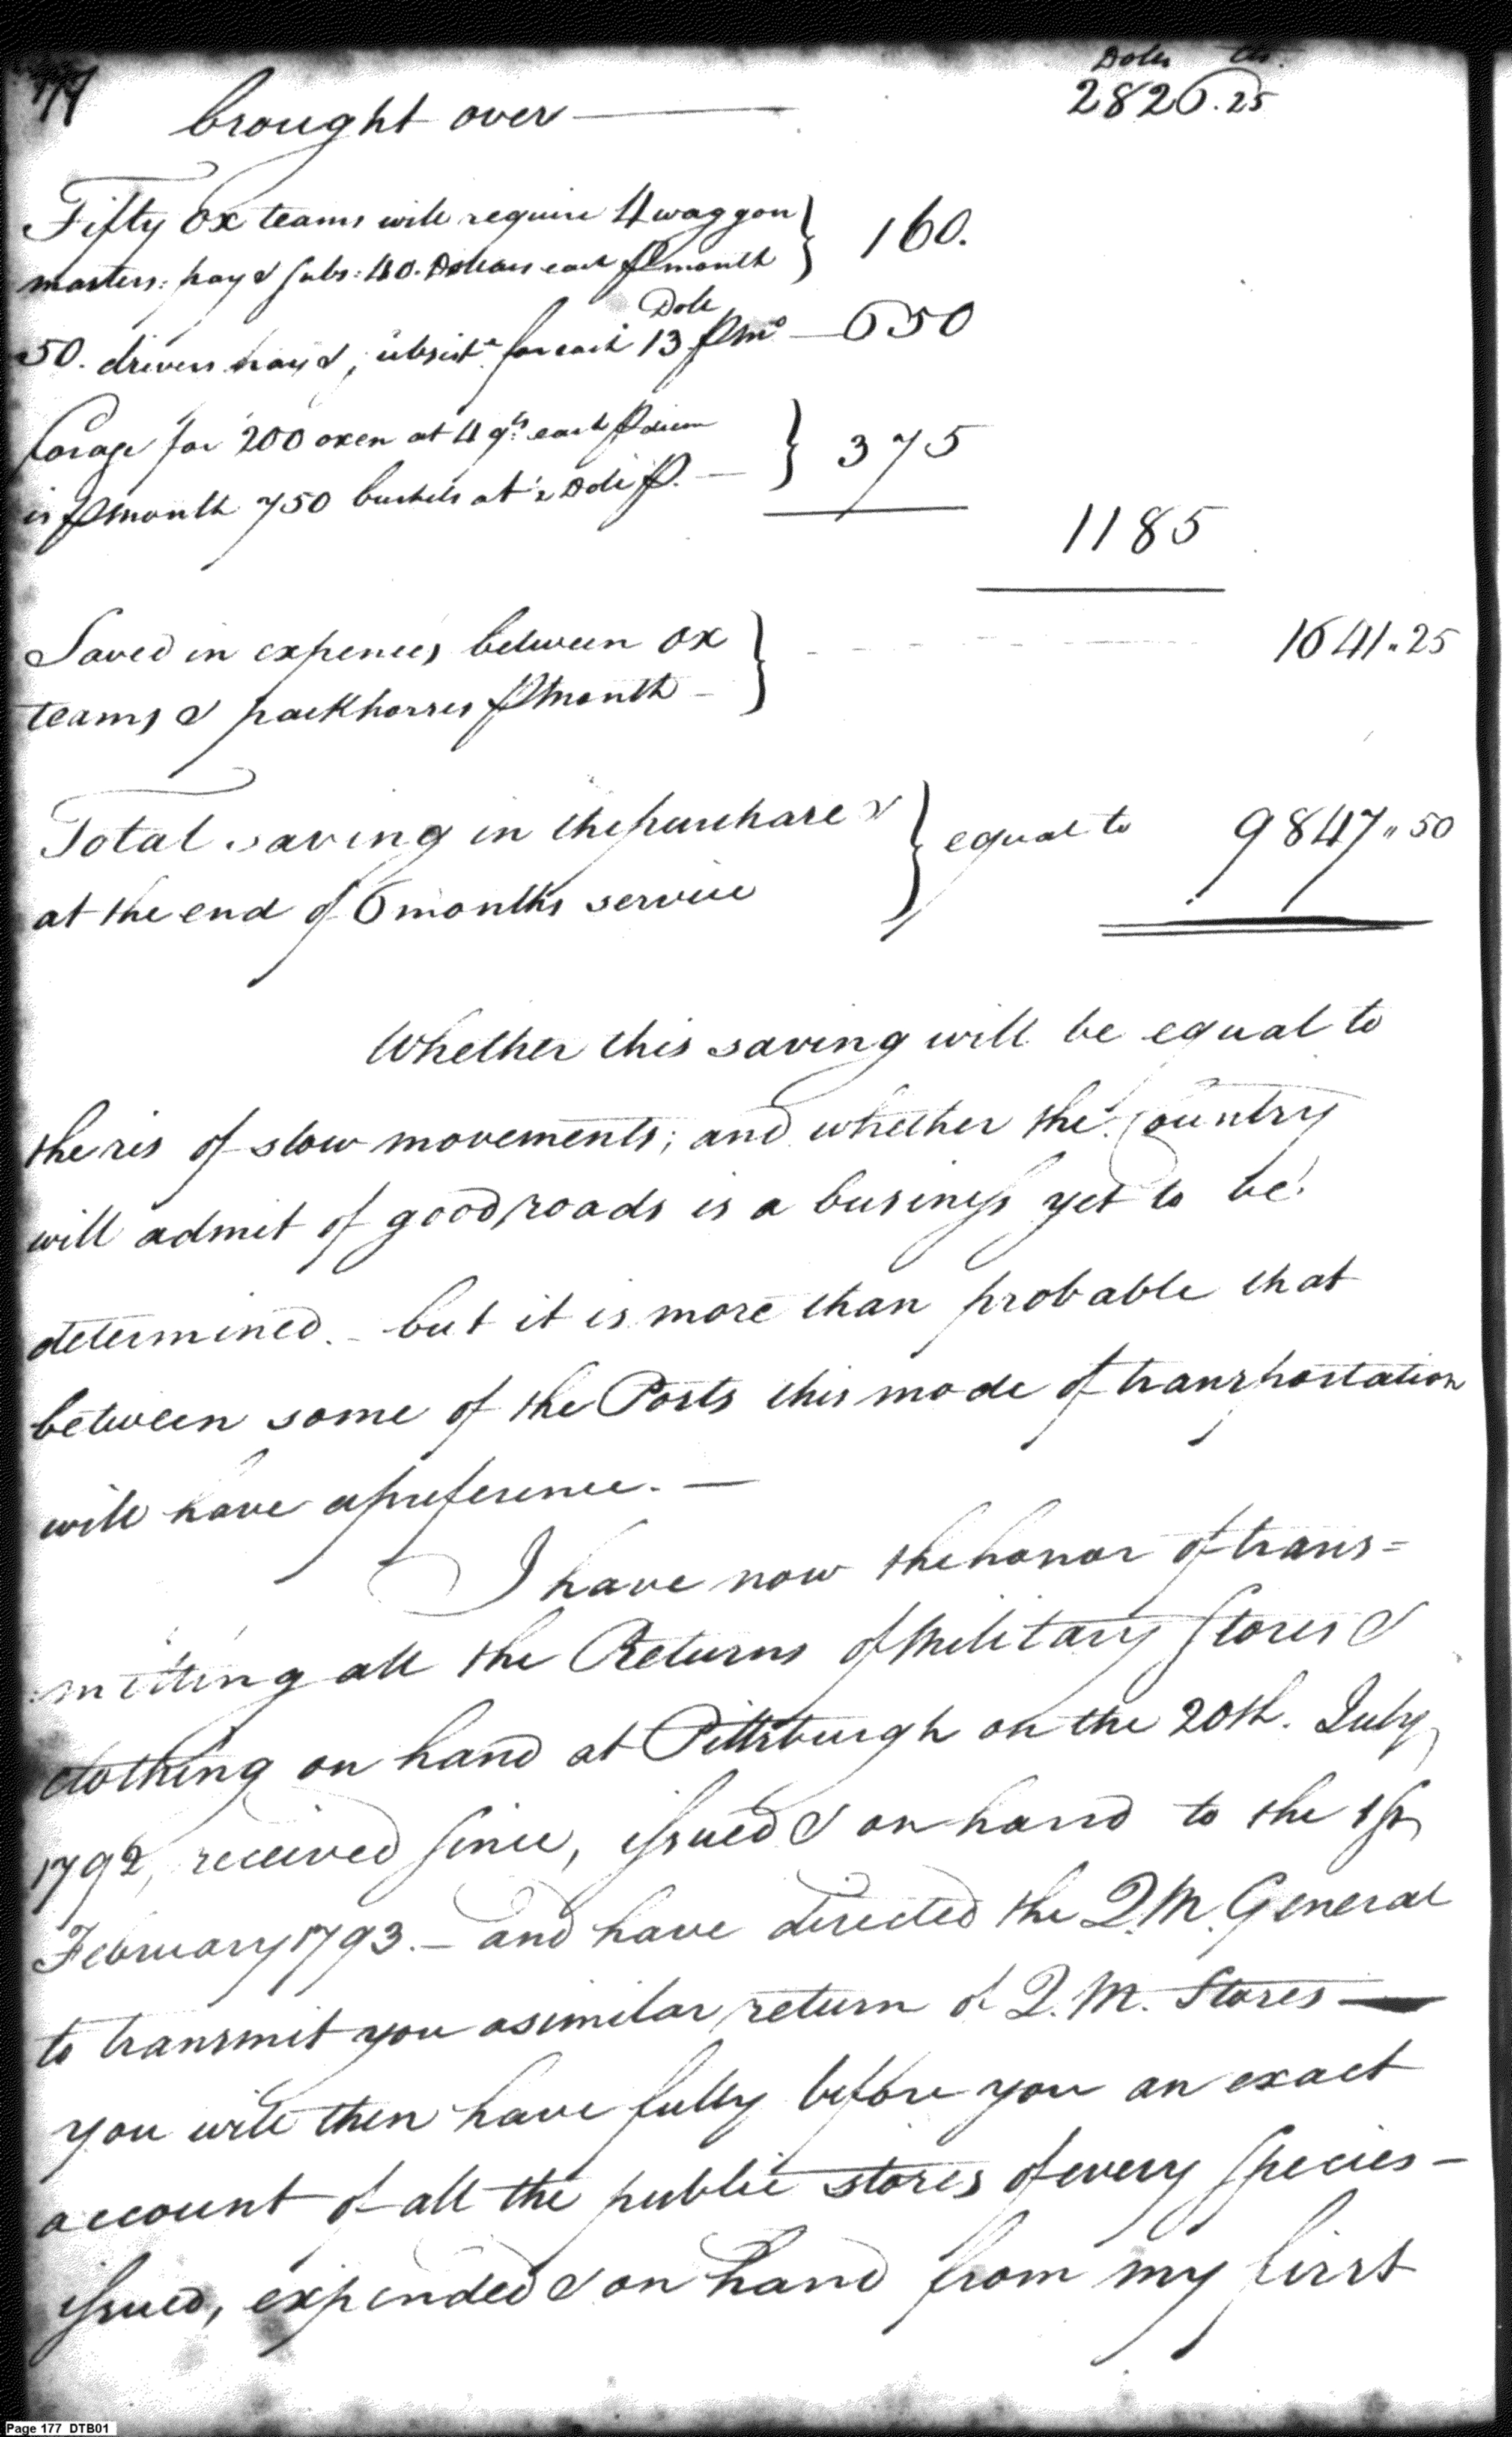 177
Dolls Cts.
brought over — 2826.25
Fifty Ox teams will require 4 waggon
masters: pay & subs: 40. Dollars each ⅌ month } 160.
50. drivers pay & subsist.e for each 13 Dolls ⅌ mo — 650
forage for 200 oxen at 4 qts. each ⅌ diem
is ⅌ month 750 bushels at ½ Doll ⅌. — } 375
1185
Saved in expences between Ox
teams & packhorses ⅌ month — } 1641.25
Total saving in the purchase &
at the end of 6 months service } equal to 9847.50
Whether this saving will be equal to
the ris of slow movements; and whether the Country
will admit of good roads is a business yet to be
determined. – but it is more than probable that
between some of the Posts this mode of transportation
will have a preference. —
I have now the honor of trans=
mitting all the Returns of Military Stores &
clothing on hand at Pittsburgh on the 20th. July
1792, received since, issued & on hand to the 1st
February 1793. – and have directed the Q.M. General
to transmit you a similar return of Q.M. Stores —
you will then have fully before you an exact
account of all the public stores of every species –
issued, expended & on hand from my first
Page 177 DTB01